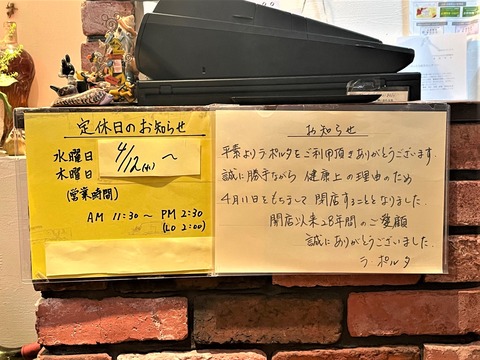 定休日のお知らせ
水曜日
木曜日
4/12(水)〜
(営業時間)
AM 11:30〜 PM 2:30
(LO 2:00)
お知らせ
平素よりラポルタをご利用頂きありがとうございます.
誠に勝手ながら 健康上の理由のため
4月11日をもちまして 閉店することとなりました.
開店以来28年間のご愛顧
誠にありがとうございました.
ラ ポルタ